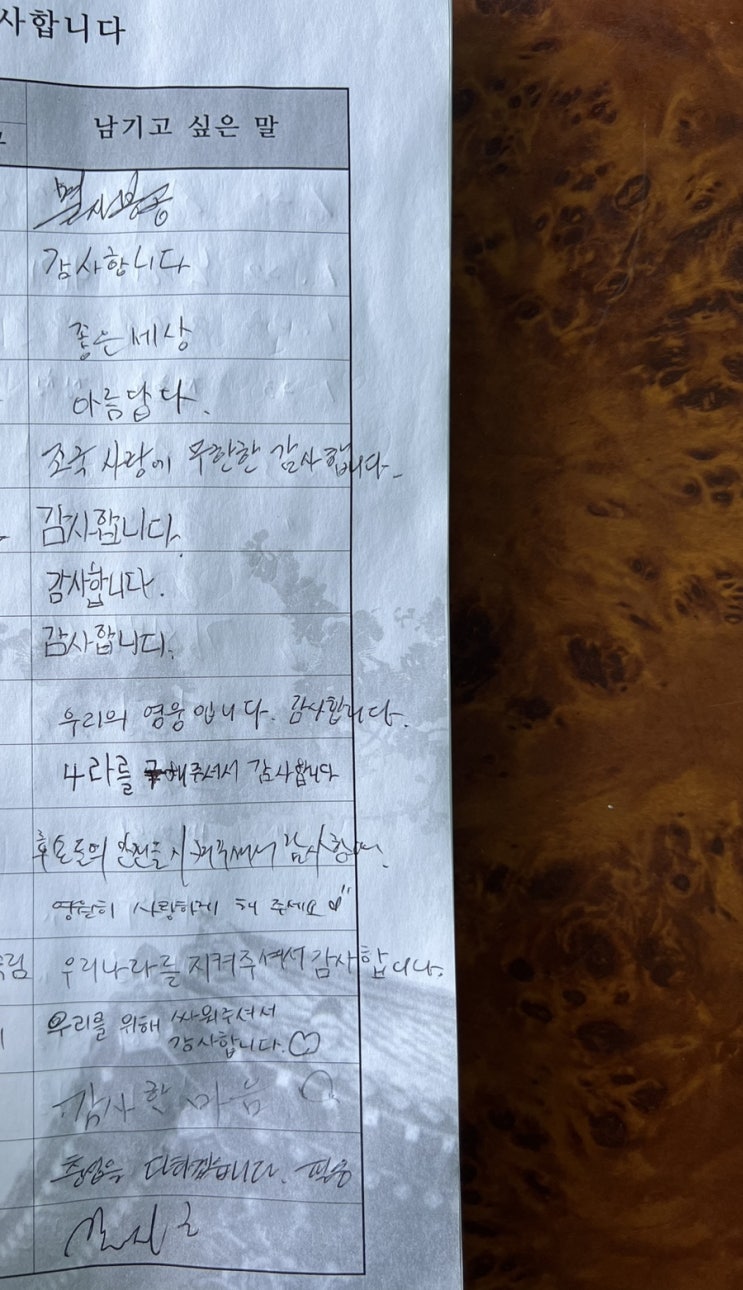 사합니다
남기고 싶은 말
멸사봉공
감사합니다
좋은세상
아름답다.
조국 사랑에 무한한 감사합니다
감사합니다.
감사합니다.
감사합니다.
우리의 영웅입니다. 감사합니다.
나라를 구해주셔서 감사합니다
후손들의 안전을 감사합니다.
영원히 사랑하게 해 주세요
림 우리나라를 지켜주셔서 감사합니다.
우리를 위해 싸워주셔서
감사합니다.
감사한 마음
다하겠습니다.